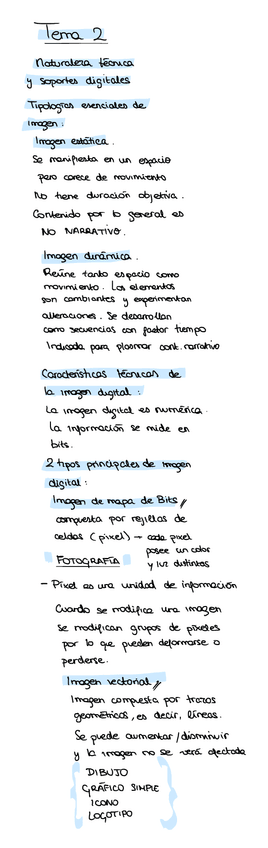 Tema 2
Naturaleza técnica
y soportes digitales
Tipologías esenciales de
imagen:
Imagen estática.
Se manifiesta en un espacio
pero carece de movimiento
No tiene duración objetiva.
Contenido por lo general es
NO NARRATIVO.
Imagen dinámica.
Reúne tanto espacio como
movimiento. Los elementos
son cambiantes y experimentan
alteraciones. Se desarrollan
como secuencias con factor tiempo
Indicada para plasmar cont. narrativo
Características técnicas de
la imagen digital:
La imagen digital es numérica.
La información se mide en
bits.
2 tipos principales de imagen
digital:
Imagen de mapa de Bits
compuesta por rejillas de
celdas (pixel) → cada pixel
posee un color
FOTOGRAFÍA y luz distintos
- Pixel es una unidad de información
Cuando se modifica una imagen
se modifican grupos de píxeles
por lo que pueden deformarse o
perderse.
Imagen vectorial
Imagen compuesta por trazos
geométricos, es decir, líneas.
Se puede aumentar/disminuir
y la imagen no se verá afectada
DIBUJO
GRÁFICO SIMPLE
ICONO
LOGOTIPO